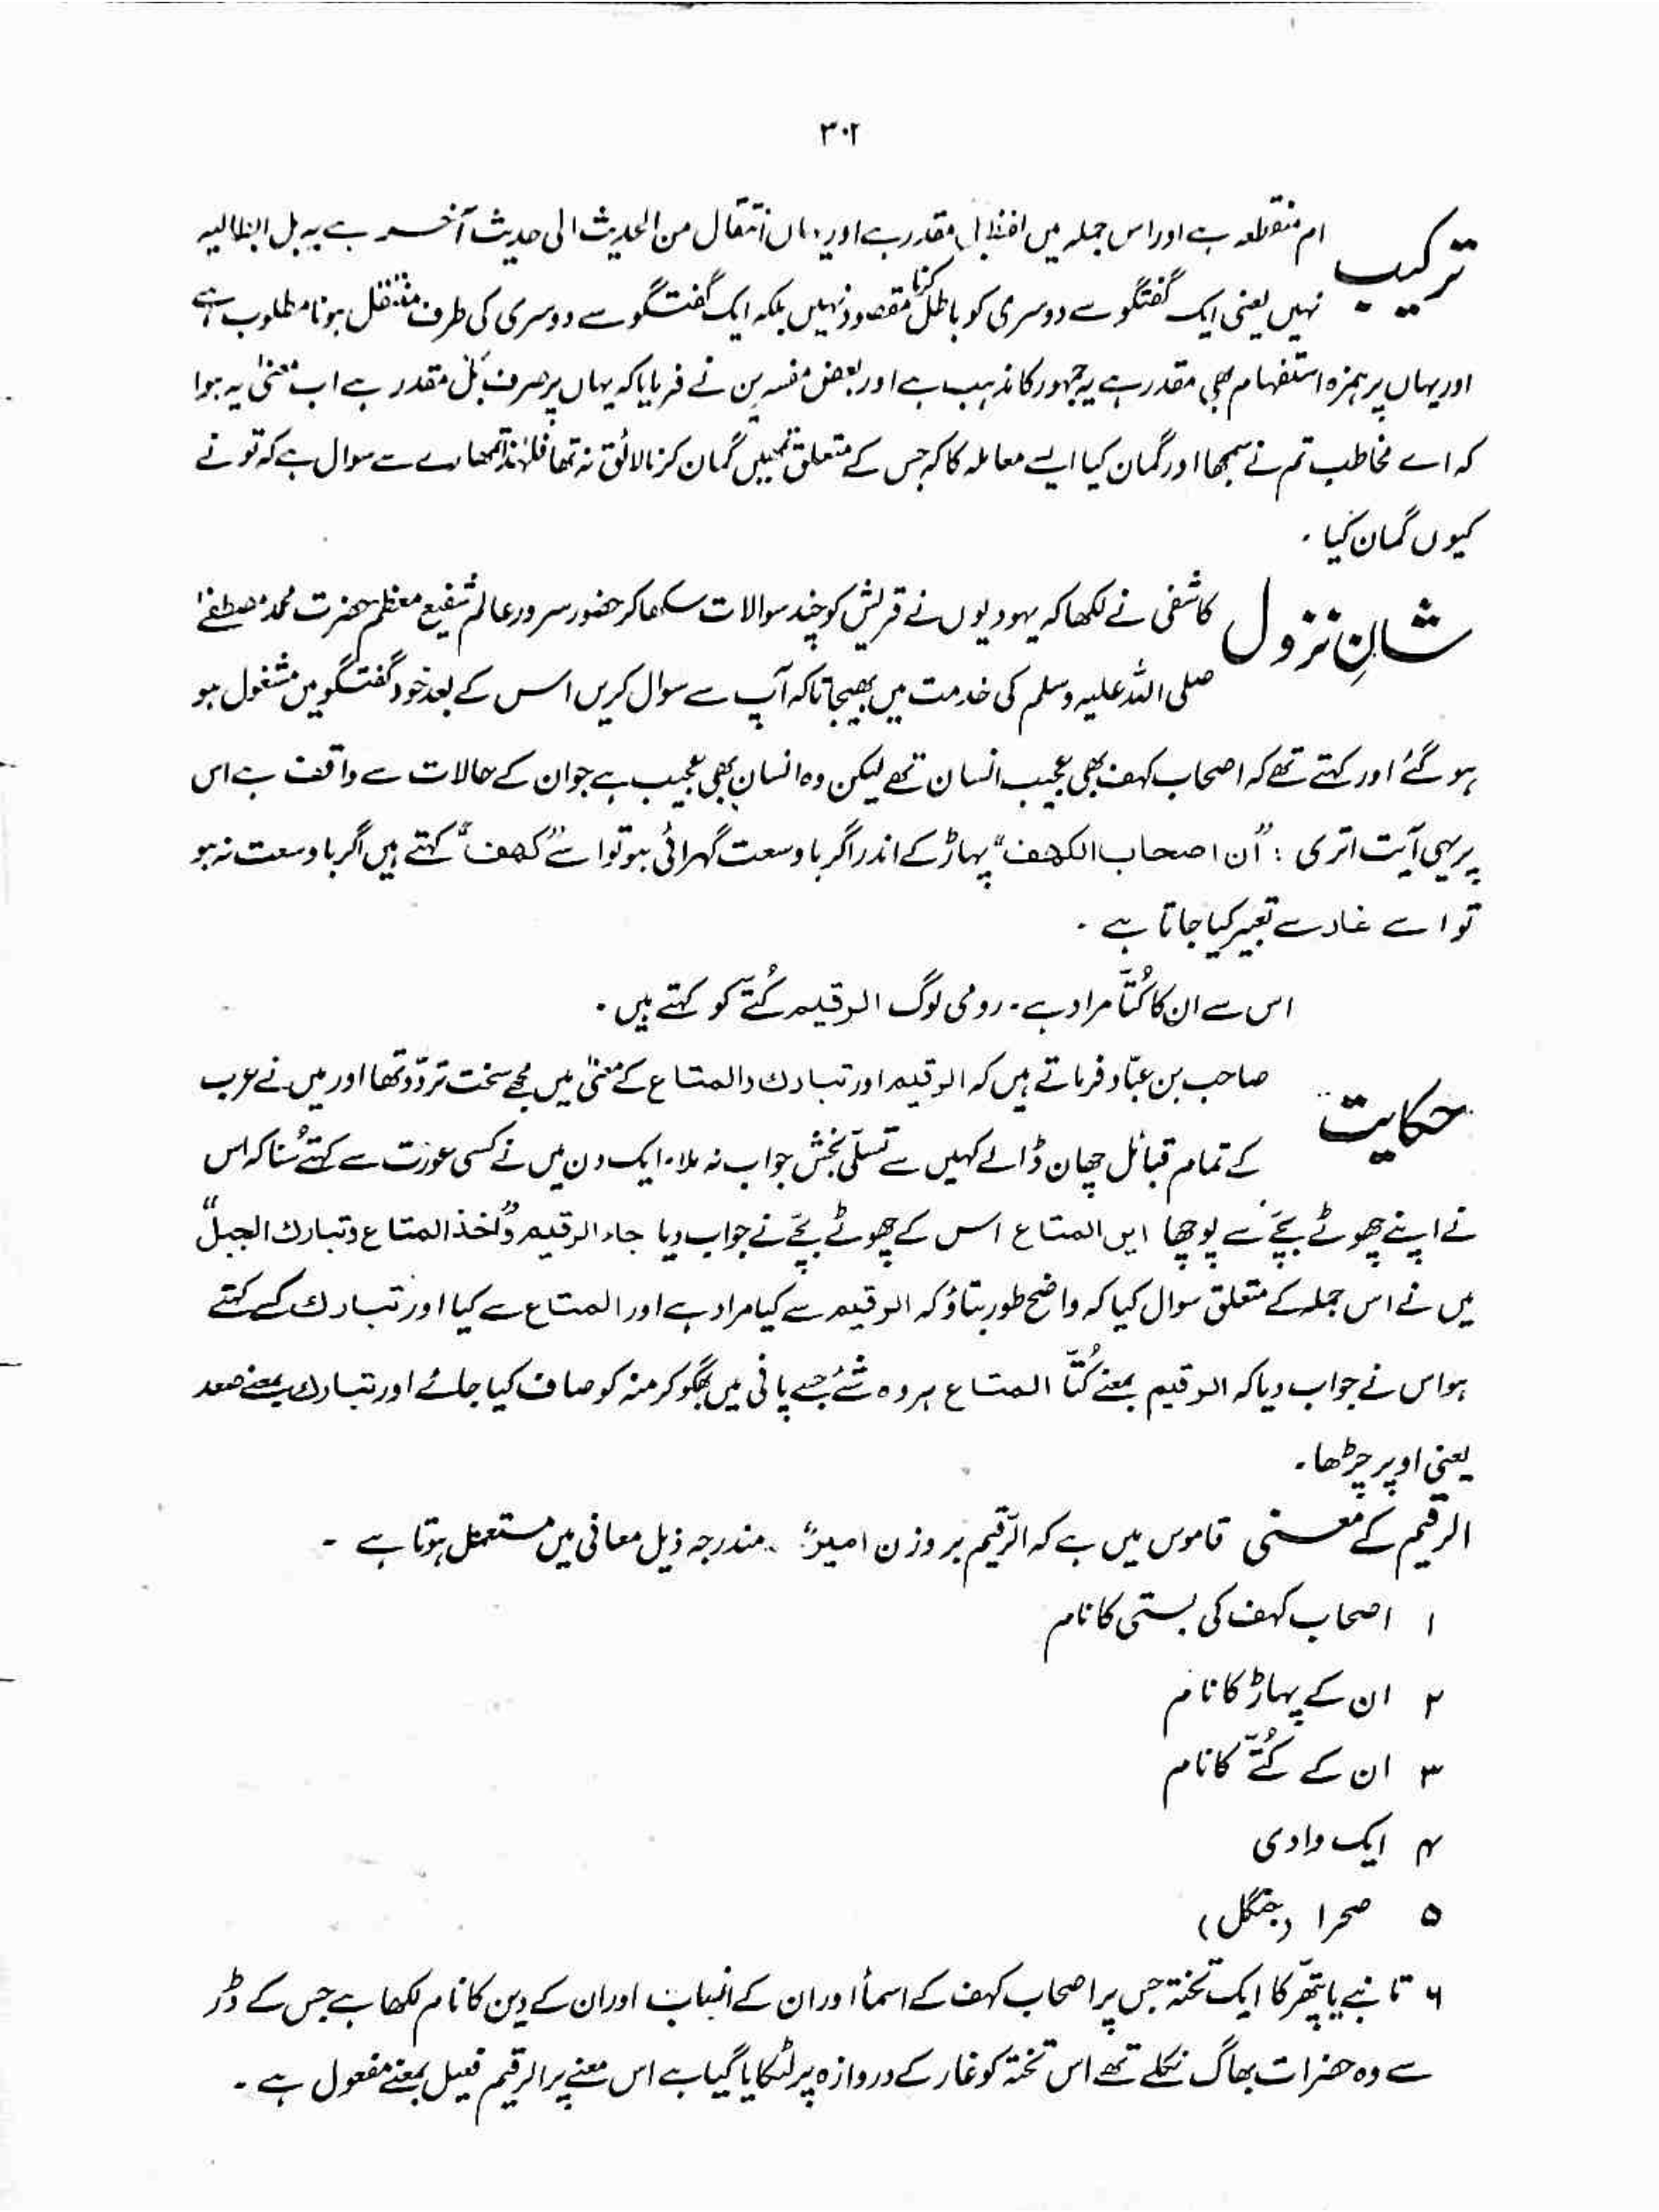 ۳۰۲
ترکیب ام منقطعہ ہے اور اس جملہ میں لفظ بل مقدر ہے اور یہاں انتقال من الحدیث الی حدیث آخر ہے یہ بل ابطالیہ
نہیں یعنی ایک گفتگو سے دوسری کو باطل کرنا مقصود نہیں بلکہ ایک گفتگو سے دوسری کی طرف منتقل ہونا مطلوب ہے
اور یہاں پر ہمزہ استفہام بھی مقدر ہے یہ جمہور کا مذہب ہے اور بعض مفسرین نے فرمایا کہ یہاں پر صرف بَل مقدر ہے اب معنیٰ یہ ہوا
کہ اے مخاطب تم نے سمجھا اور گمان کیا ایسے معاملہ کا کہ جس کے متعلق تمہیں گمان کرنا لائق نہ تھا فلہٰذا تمھارے سے سوال ہے کہ تو نے
کیوں گمان کیا ۔
شانِ نزول کاشفی نے لکھا کہ یہودیوں نے قریش کو چند سوالات سکھا کر حضور سرور عالم شفیع معظم حضرت محمد مصطفےٰ
صلی اللہ علیہ وسلم کی خدمت میں بھیجا تاکہ آپ سے سوال کریں اس کے بعد خود گفتگو میں مشغول ہو
ہو گئے اور کہتے تھے کہ اصحاب کہف بھی عجیب انسان تھے لیکن وہ انسان بھی عجیب ہے جو ان کے حالات سے واقف ہے اس
پر یہی آیت اتری : "اُن اصحاب الکھف" پہاڑ کے اندر اگر با وسعت گہرائی ہو تو اسے "کھف" کہتے ہیں اگر با وسعت نہ ہو
تو اسے غار سے تعبیر کیا جاتا ہے ۔
اس سے ان کا کُتّا مراد ہے۔ رومی لوگ الرقیم کُتّے کو کہتے ہیں ۔
حکایت صاحب بن عبّاد فرماتے ہیں کہ الرقیم اور تبارک والمتاع کے معنیٰ میں مجھے سخت تردّد تھا اور میں نے عرب
کے تمام قبائل چھان ڈالے کہیں سے تسلّی بخش جواب نہ ملا۔ ایک دن میں نے کسی عورت سے کہتے سُنا کہ اس
نے اپنے چھوٹے بچّے سے پوچھا این المتاع اس کے چھوٹے بچّے نے جواب دیا جاء الرقیم و"اخذ المتاع وتبارك الجبل"
میں نے اس جملہ کے متعلق سوال کیا کہ واضح طور بتاؤ کہ الرقیم سے کیا مراد ہے اور المتاع سے کیا اور تبارك کسے کہتے
ہو اس نے جواب دیا کہ الرقیم بمعنے کُتّا المتاع ہر وہ شئے جسے پانی میں بھگو کر منہ کو صاف کیا جائے اور تبارك بمعنے صعد
یعنی اوپر چڑھا ۔
الرقیم کے معنی قاموس میں ہے کہ الرّقیم بر وزن امیرٌ ۔ مندرجہ ذیل معانی میں مستعمل ہوتا ہے ۔
۱ اصحاب کہف کی بستی کا نام
۲ ان کے پہاڑ کا نام
۳ ان کے کُتّے کا نام
۴ ایک وادی
۵ صحرا (جنگل)
۶ تانبے یا پتھّر کا ایک تختہ جس پر اصحاب کہف کے اسمأ اور ان کے انساب اور ان کے دین کا نام لکھا ہے جس کے ڈر
سے وہ حضرات بھاگ نکلے تھے اس تختہ کو غار کے دروازہ پر لٹکایا گیا ہے اس معنے پر الرقیم فعیل بمعنے مفعول ہے ۔